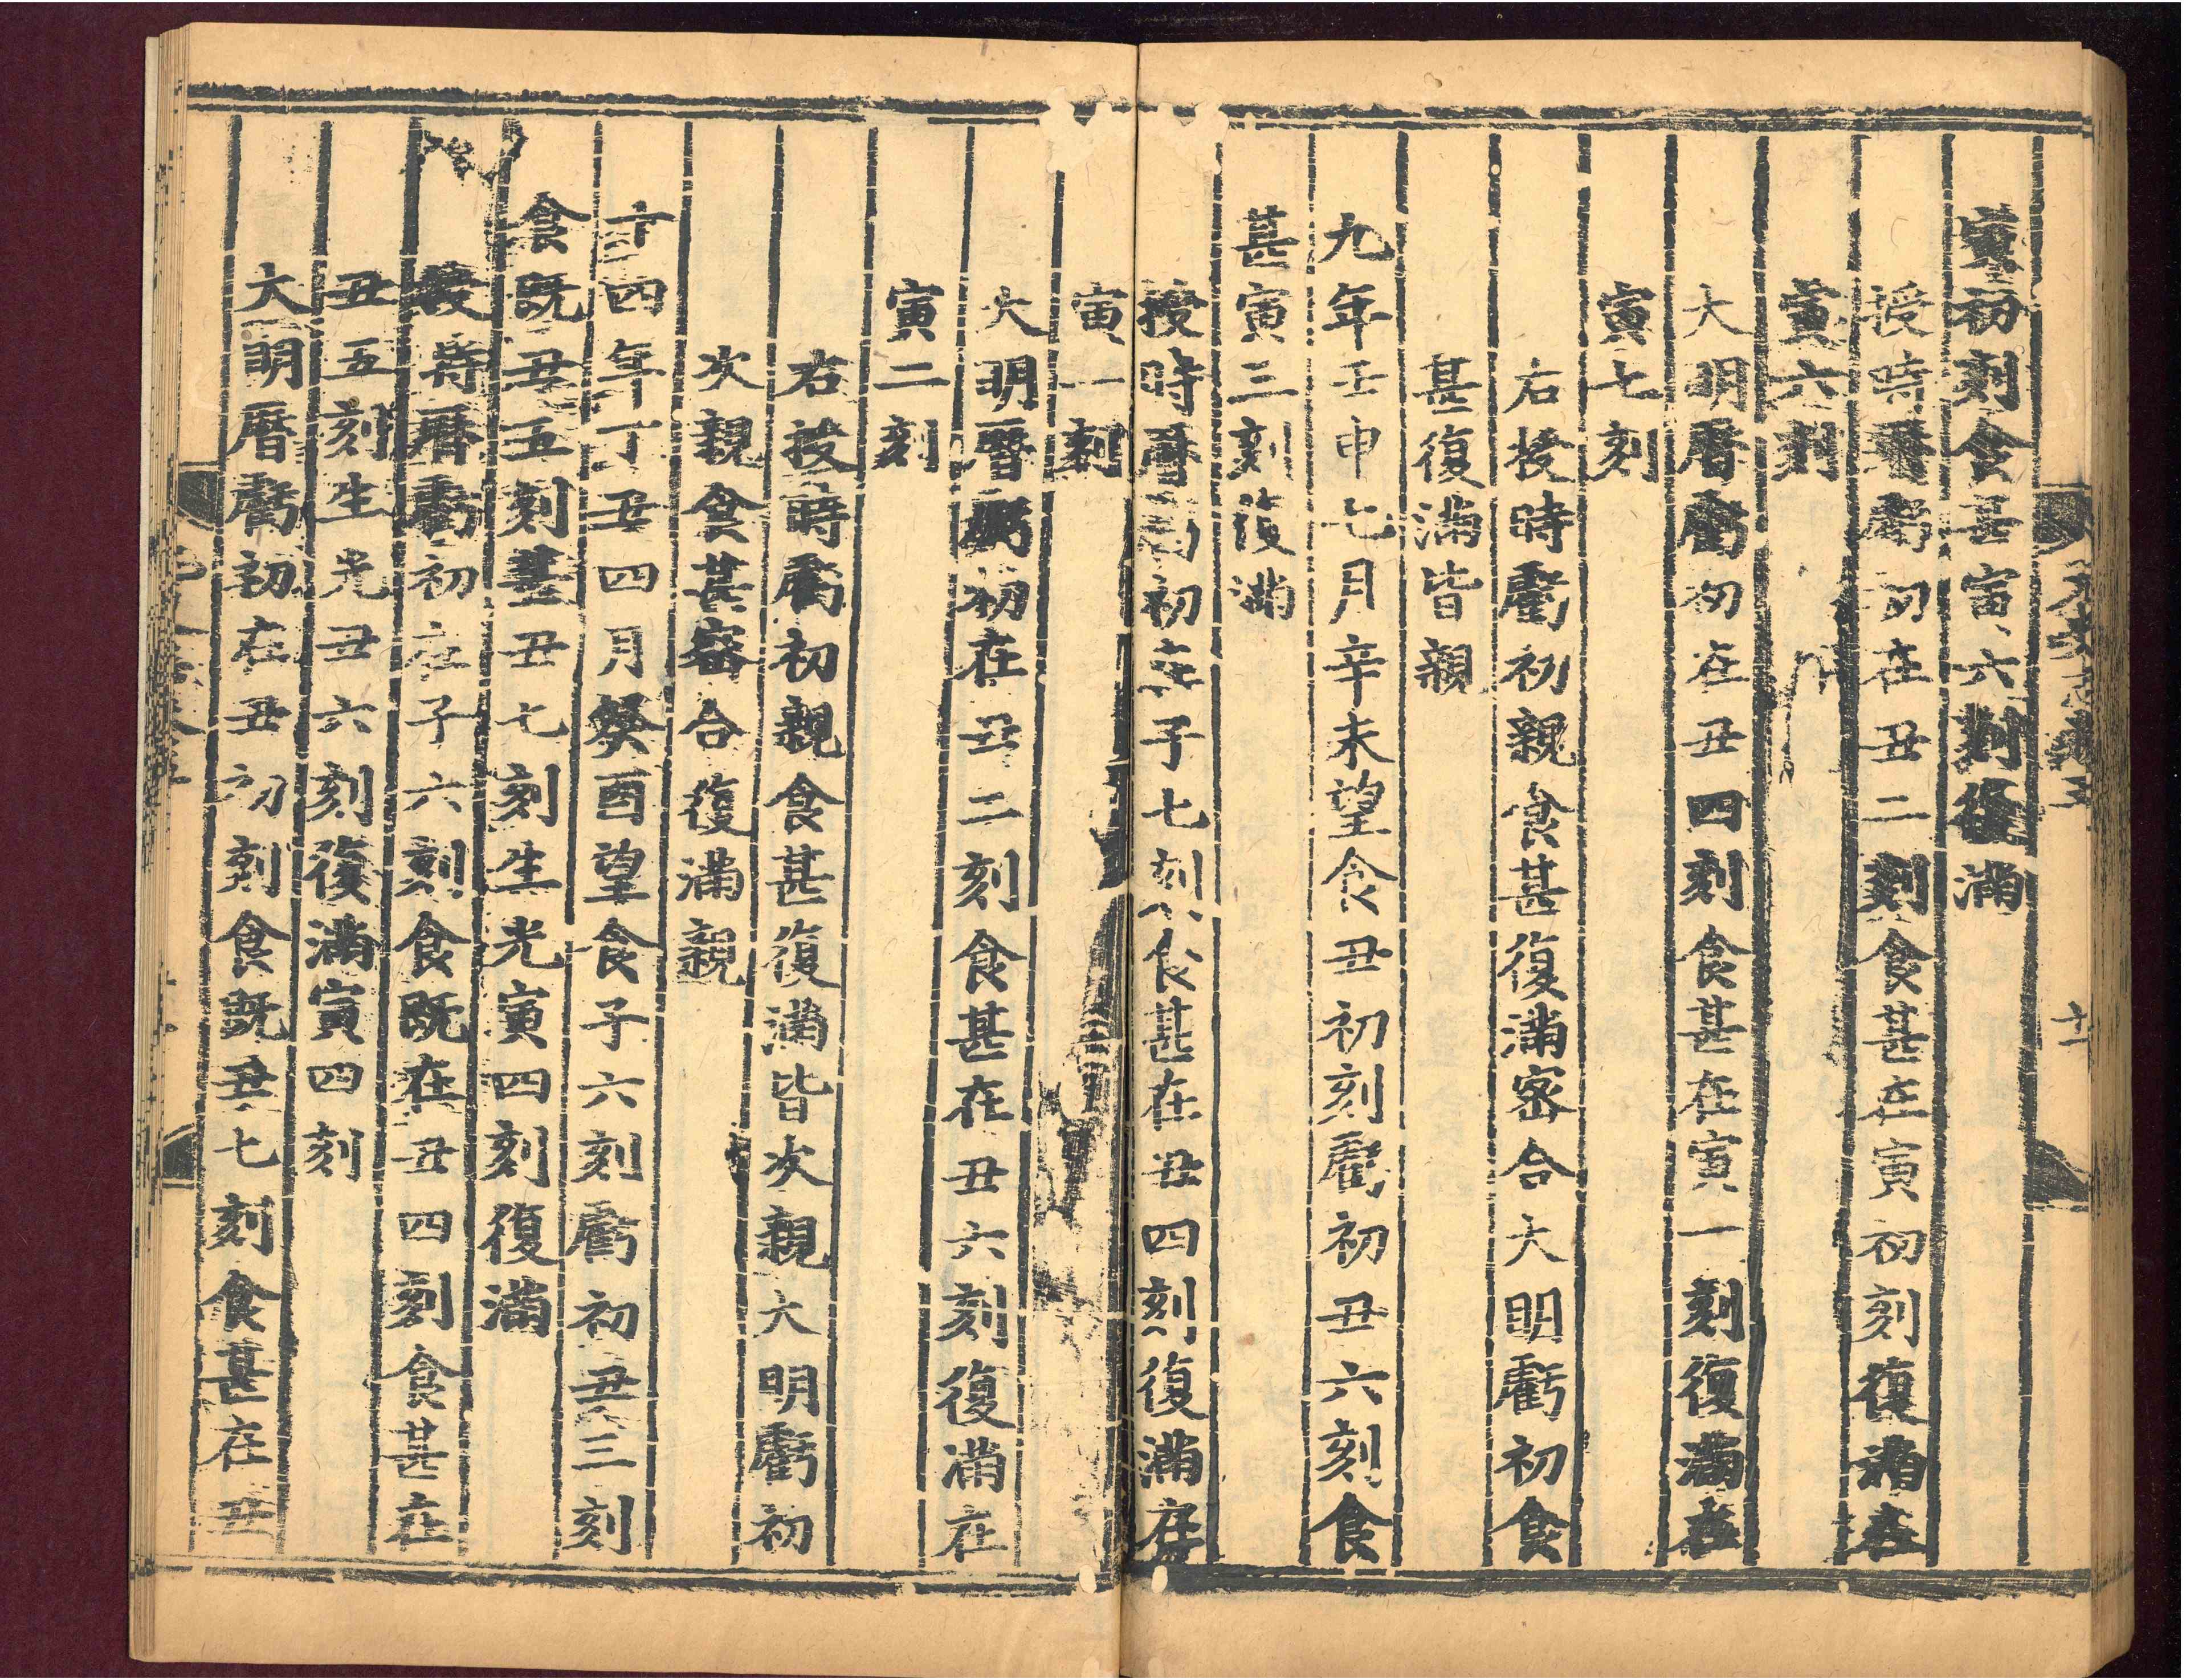 寅初刻食甚寅六刻復滿
授時曆虧初在丑二刻食甚在寅初刻復滿在
寅六刻
大明曆虧初在丑四刻食甚在寅一刻復滿在
寅七刻
右授時虧初親食甚復滿密合大明虧初食
甚復滿皆親
九年壬申七月辛未望食丑初刻虧初丑六刻食
甚寅三刻復滿
授時曆虧初在子七刻食甚在丑四刻復滿在
寅一刻
大明曆虧初在丑二刻食甚在丑六刻復滿在
寅二刻
右授時虧初親食甚復滿皆次親大明虧初
次親食甚密合復滿親
十四年丁丑四月癸酉望食子六刻虧初丑三刻
食既丑五刻甚丑七刻生光寅四刻復滿
授時曆虧初在子六刻食既在丑四刻食甚在
丑五刻生光丑六刻復滿寅四刻
大明曆虧初在丑初刻食既丑七刻食甚在丑